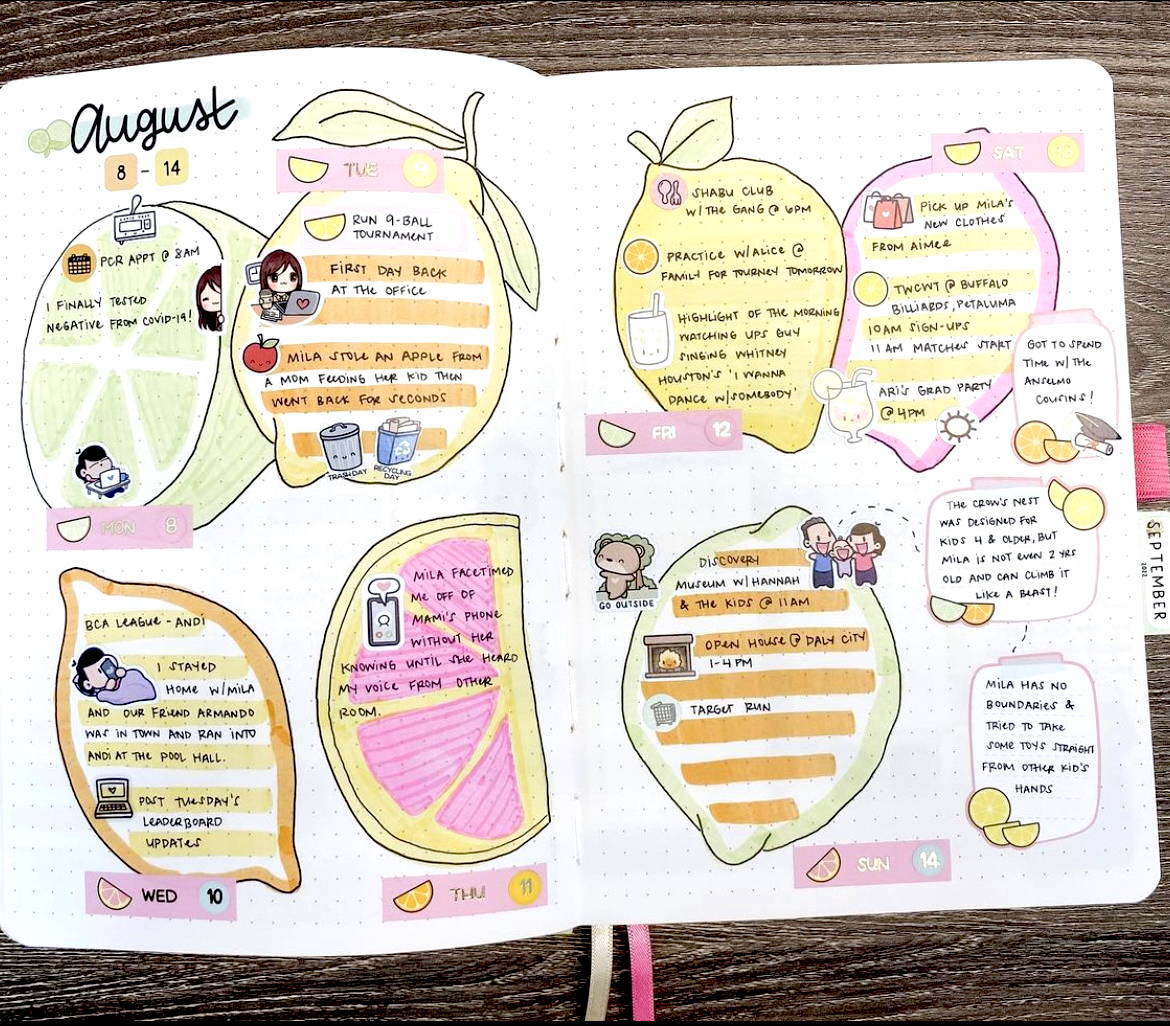 August
8 - 14
PCR APPT @ 8AM
I FINALLY TESTED
NEGATIVE FROM COVID-19!
MON 8
TUE 9
RUN 9-BALL
TOURNAMENT
FIRST DAY BACK
AT THE OFFICE
MILA STOLE AN APPLE FROM
A MOM FEEDING HER KID THEN
WENT BACK FOR SECONDS
TRASH DAY
RECYCLING
DAY
BCA LEAGUE - ANDI
I STAYED
HOME W/MILA
AND OUR FRIEND ARMANDO
WAS IN TOWN AND RAN INTO
ANDI AT THE POOL HALL.
POST TUESDAY'S
LEADERBOARD
UPDATES
WED 10
MILA FACETIMED
ME OFF OF
MAMI'S PHONE
WITHOUT HER
KNOWING UNTIL SHE HEARD
MY VOICE FROM OTHER
ROOM.
THU 11
SHABU CLUB
W/THE GANG @ 6PM
PRACTICE W/ALICE @
FAMILY FOR TOURNEY TOMORROW
HIGHLIGHT OF THE MORNING
WATCHING UPS GUY
SINGING WHITNEY
HOUSTON'S 'I WANNA
DANCE W/SOMEBODY'
FRI 12
SAT 13
PICK UP MILA'S
NEW CLOTHES
FROM AIMEE
TWCWT @ BUFFALO
BILLIARDS, PETALUMA
10AM SIGN-UPS
11 AM MATCHES START
ARI'S GRAD PARTY
@ 4PM
GOT TO SPEND
TIME W/THE
ANSELMO
COUSINS!
GO OUTSIDE
DISCOVERY
MUSEUM W/HANNAH
& THE KIDS @ 11AM
OPEN HOUSE @ DALY CITY
1-4 PM
TARGET RUN
SUN 14
THE CROW'S NEST
WAS DESIGNED FOR
KIDS 4 & OLDER, BUT
MILA IS NOT EVEN 2 YRS
OLD AND CAN CLIMB IT
LIKE A BEAST!
MILA HAS NO
BOUNDARIES &
TRIED TO TAKE
SOME TOYS STRAIGHT
FROM OTHER KID'S
HANDS
SEPTEMBER
2022